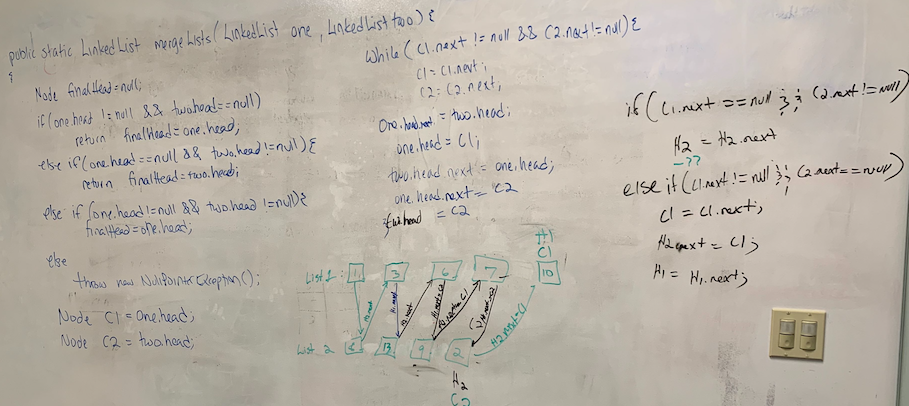 public static LinkedList mergeLists(LinkedList one, LinkedList two) {
{
Node finalHead=null;
if(one.head != null && two.head==null)
return finalHead=one.head;
else if(one.head==null && two.head!=null){
return finalHead=two.head;
else if (one.head!=null && two.head !=null){
finalHead=one.head;
else
throw new NullPointerException();
Node C1 = one.head;
Node C2 = two.head;
while( C1.next != null && C2.next!=null){
C1=C1.next;
C2=C2.next;
one.head.next = two.head;
one.head = C1;
two.head.next = one.head;
one.head.next= C2
two.head = C2
if( C1.next == null && C2.next != null)
H2 = H2.next
-??
else if(C1.next != null && C2.next==null)
C1 = C1.next;
H2.next = C1;
H1 = H1.next;
H1
C1
List 1: 1 3 6 7 10
H1.next
H2.next=C1
List 2 13 9 2
H2
C2